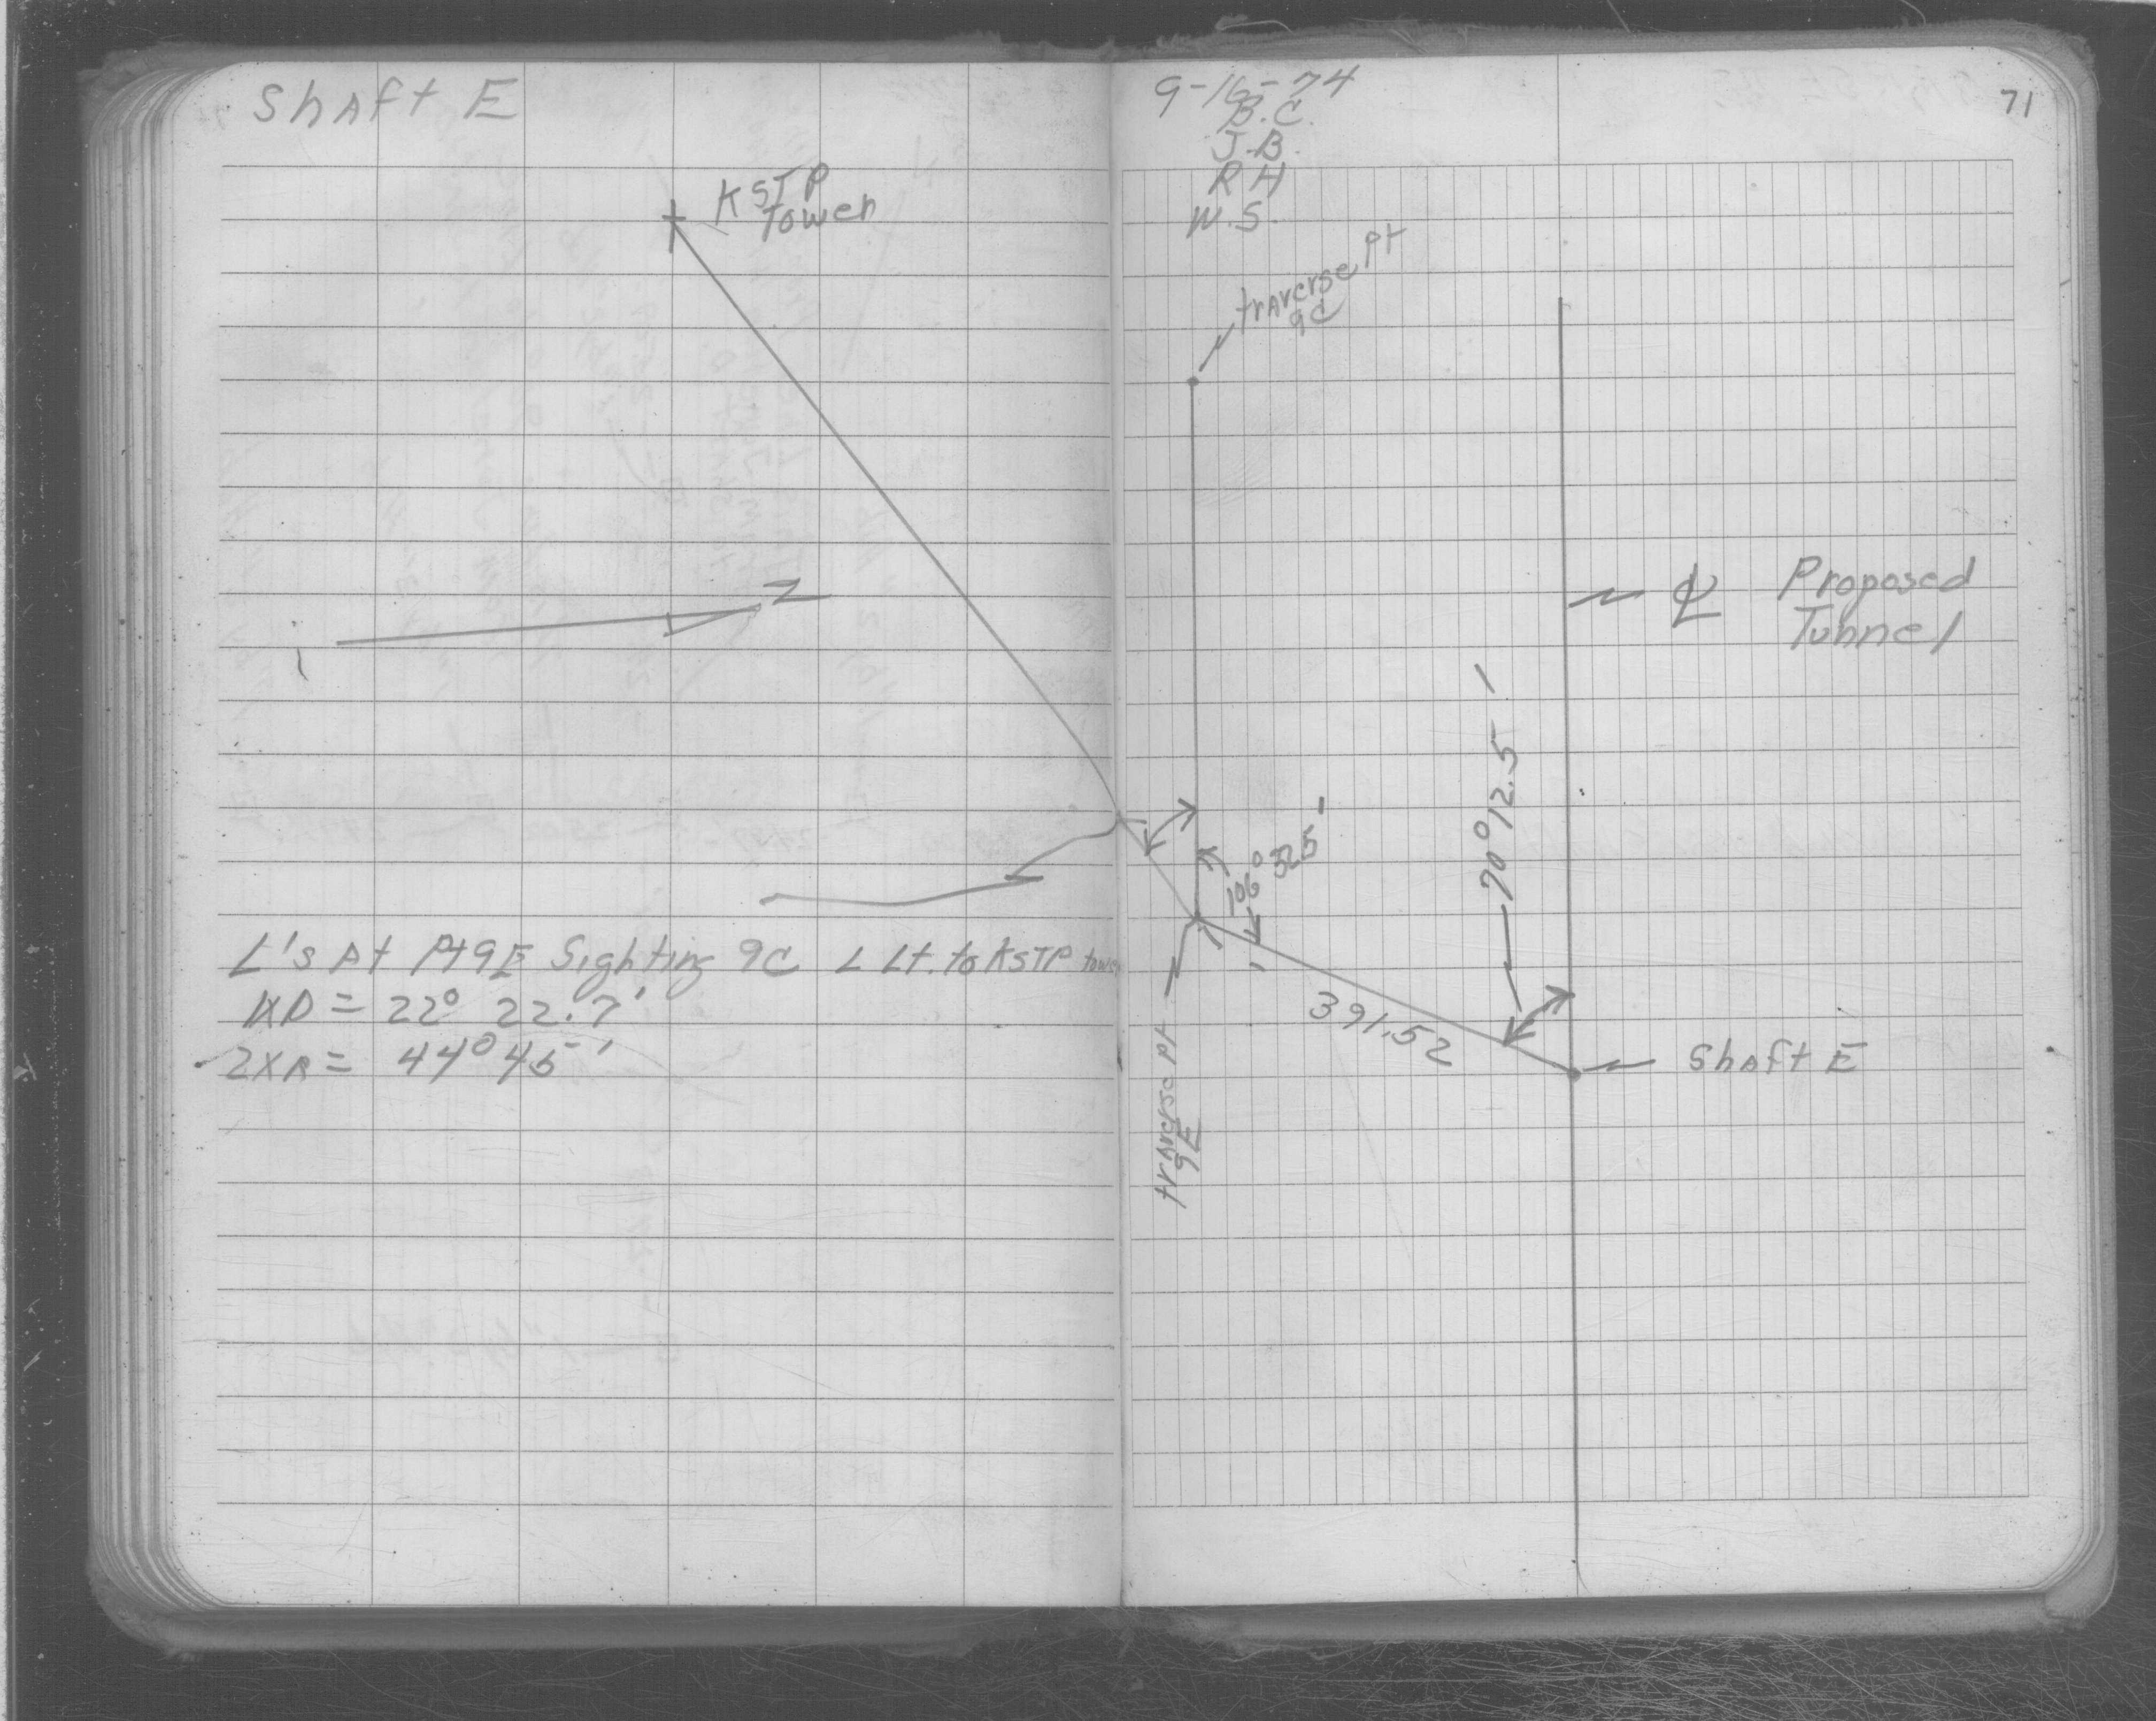 Shaft E
KSTP
Tower
N
∠'s At Pt 9E Sighting 9C ∠ Lt. to KSTP tower
1XD = 22° 22.7'
2XR = 44° 45'
9-16-74
B.C.
J.B.
R H
W.S.
71
traverse Pt
9C
℄ Proposed
Tunnel
70° 12.5'
106° 32.5'
391.52
Shaft E
traverse Pt
9E